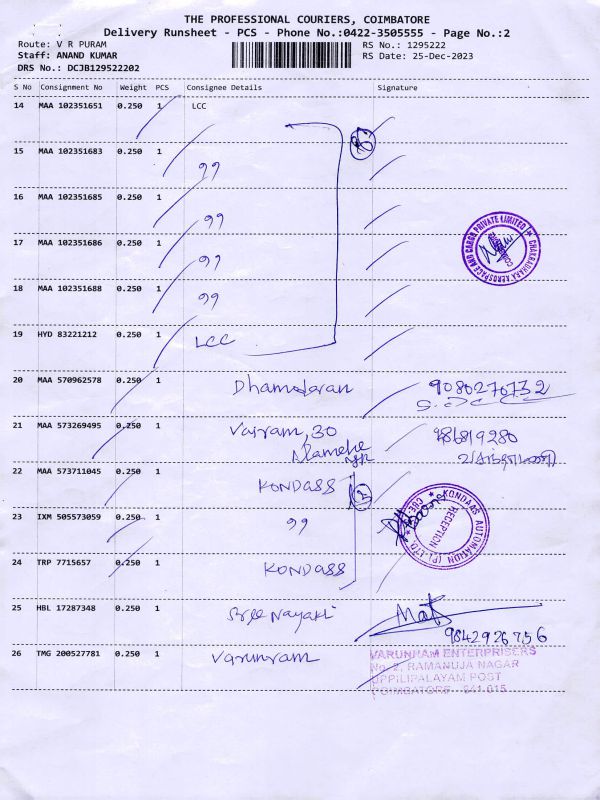 THE PROFESSIONAL COURIERS, COIMBATORE
Delivery Runsheet - PCS - Phone No.:0422-3505555 - Page No.:2
Route: V R PURAM
Staff: ANAND KUMAR
DRS No.: DCJB129522202
RS No.: 1295222
RS Date: 25-Dec-2023
S No Consignment No Weight PCS Consignee Details Signature
14 MAA 102351651 0.250 1 LCC
15 MAA 102351683 0.250 1 99
16 MAA 102351685 0.250 1 99
17 MAA 102351686 0.250 1 99
18 MAA 102351688 0.250 1 99
CHAKRADHARA AEROSPACE AND CARGO PRIVATE LIMITED
19 HYD 83221212 0.250 1 LCC
20 MAA 570962578 0.250 1 Dhamodaran 9080276732
21 MAA 573269495 0.250 1 Vairam, 30
22 MAA 573711045 0.250 1 KONDASS
23 IXM 505573059 0.250 1 99
KONDAAS AUTOMATION (P) LTD. CBE
RECEPTION
24 TRP 7715657 0.250 1 KONDASS
25 HBL 17287348 0.250 1 Sree Nayaki
9842926756
26 TMG 200527781 0.250 1 Varunram
VARUNHAM ENTERPRISERS
No. 2, RAMANUJA NAGAR
UPPILIPALAYAM POST
COIMBATORE - 641 015